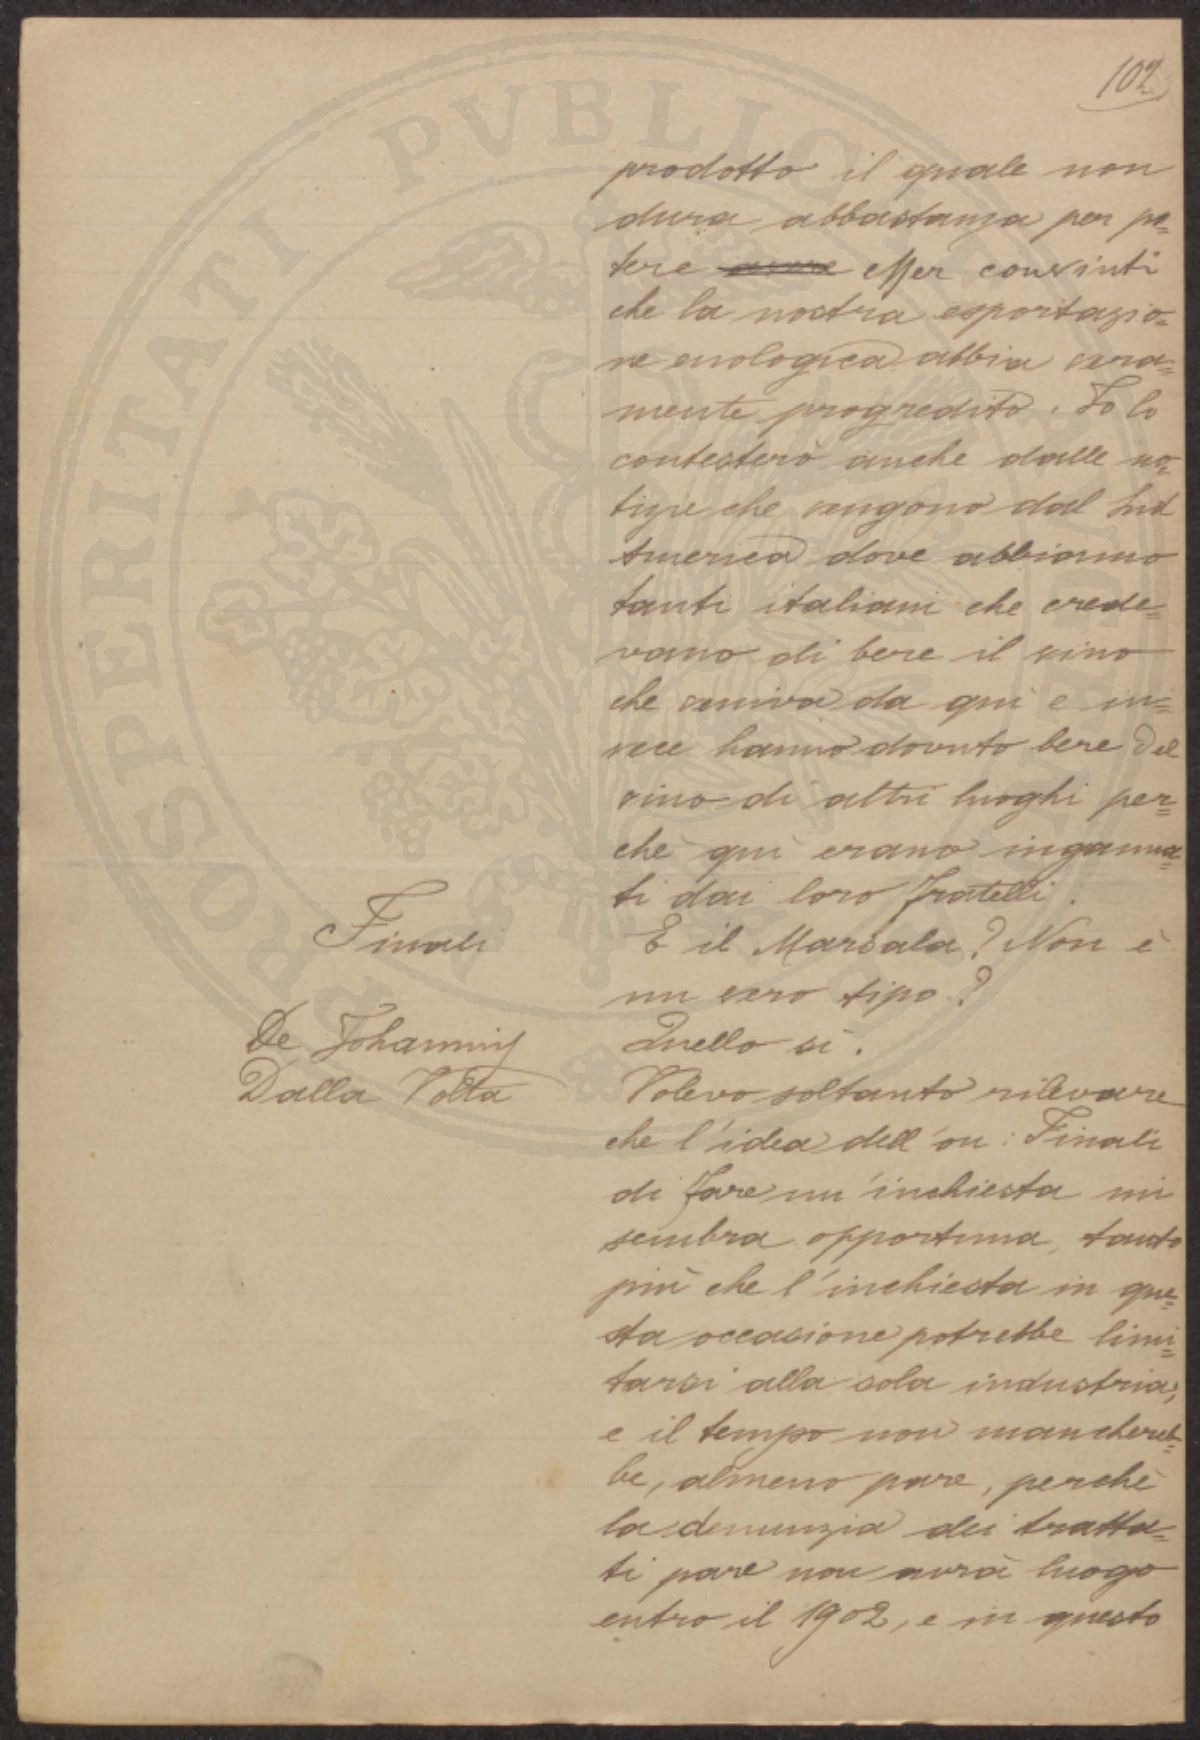 102
prodotto il quale non
dura abbastanza per po=
tere avere esser convinti
che la nostra esportazio=
ne enologica abbia vera=
mente progredito. Io lo
contesterò anche dalle no=
tizie che vengono dal Sud
America dove abbiamo
tanti italiani che crede=
vano di bere il vino
che veniva da qui e in=
vece hanno dovuto bere del
vino di altri luoghi per=
chè qui erano inganna=
ti dai loro fratelli.
Finali E il Marsala? Non è
un vero tipo?
De Johannis Quello sì.
Dalla Volta Volevo soltanto rilevare
che l'idea dell'on: Finali
di fare un'inchiesta mi
sembra opportuna, tanto
più che l'inchiesta in que=
sta occasione potrebbe limi=
tarsi alla sola industria;
e il tempo non manchereb=
be, almeno pare, perchè
la denunzia dei tratta=
ti pare non avrà luogo
entro il 1902, e in questo
PROSPERITATI PVBLICAE